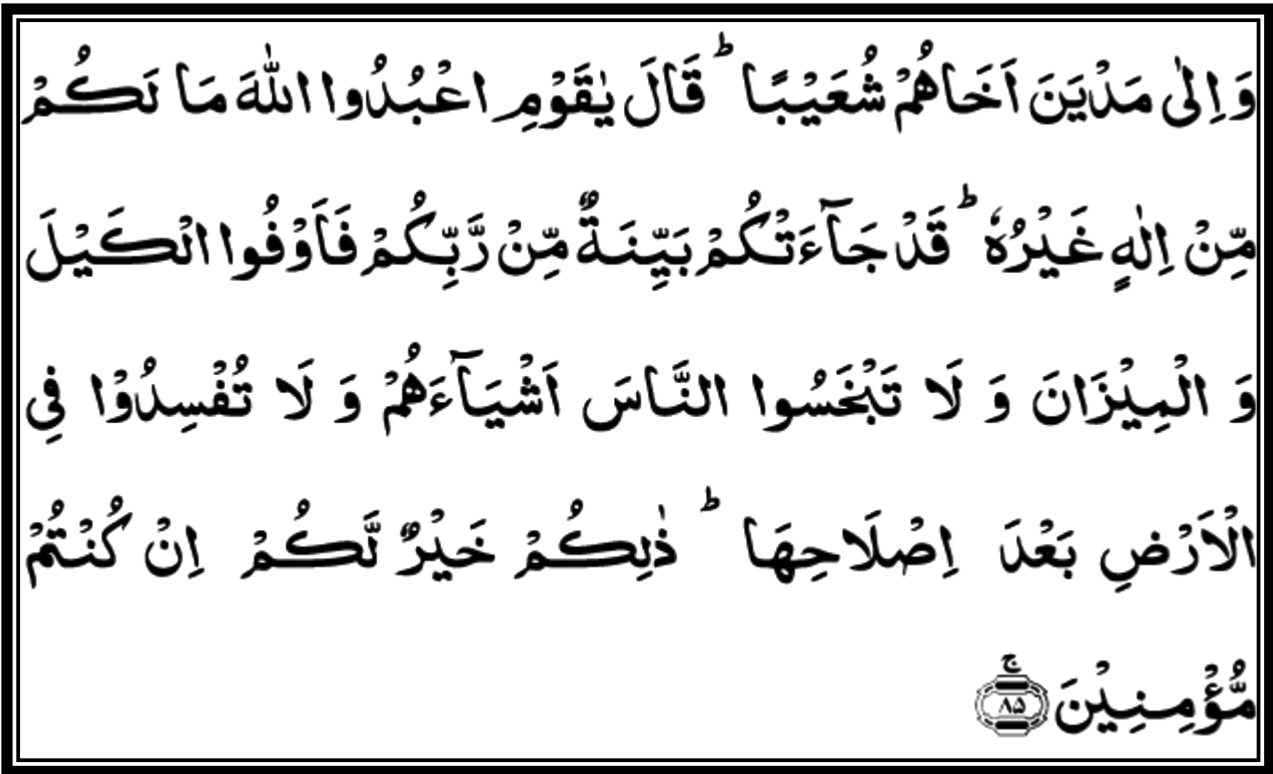 وَاِلٰى مَدْيَنَ اَخَاهُمْ شُعَيْبًا ؕ قَالَ يٰقَوْمِ اعْبُدُوا اللّٰهَ مَا لَكُمْ
مِّنْ اِلٰهٍ غَيْرُهٗ ؕ قَدْ جَآءَتْكُمْ بَيِّنَةٌ مِّنْ رَّبِّكُمْ فَاَوْفُوا الْكَيْلَ
وَ الْمِيْزَانَ وَ لَا تَبْخَسُوا النَّاسَ اَشْيَآءَهُمْ وَ لَا تُفْسِدُوْا فِي
الْاَرْضِ بَعْدَ اِصْلَاحِهَا ؕ ذٰلِكُمْ خَيْرٌ لَّكُمْ اِنْ كُنْتُمْ
مُّؤْمِنِيْنَ ۚ ۸۵